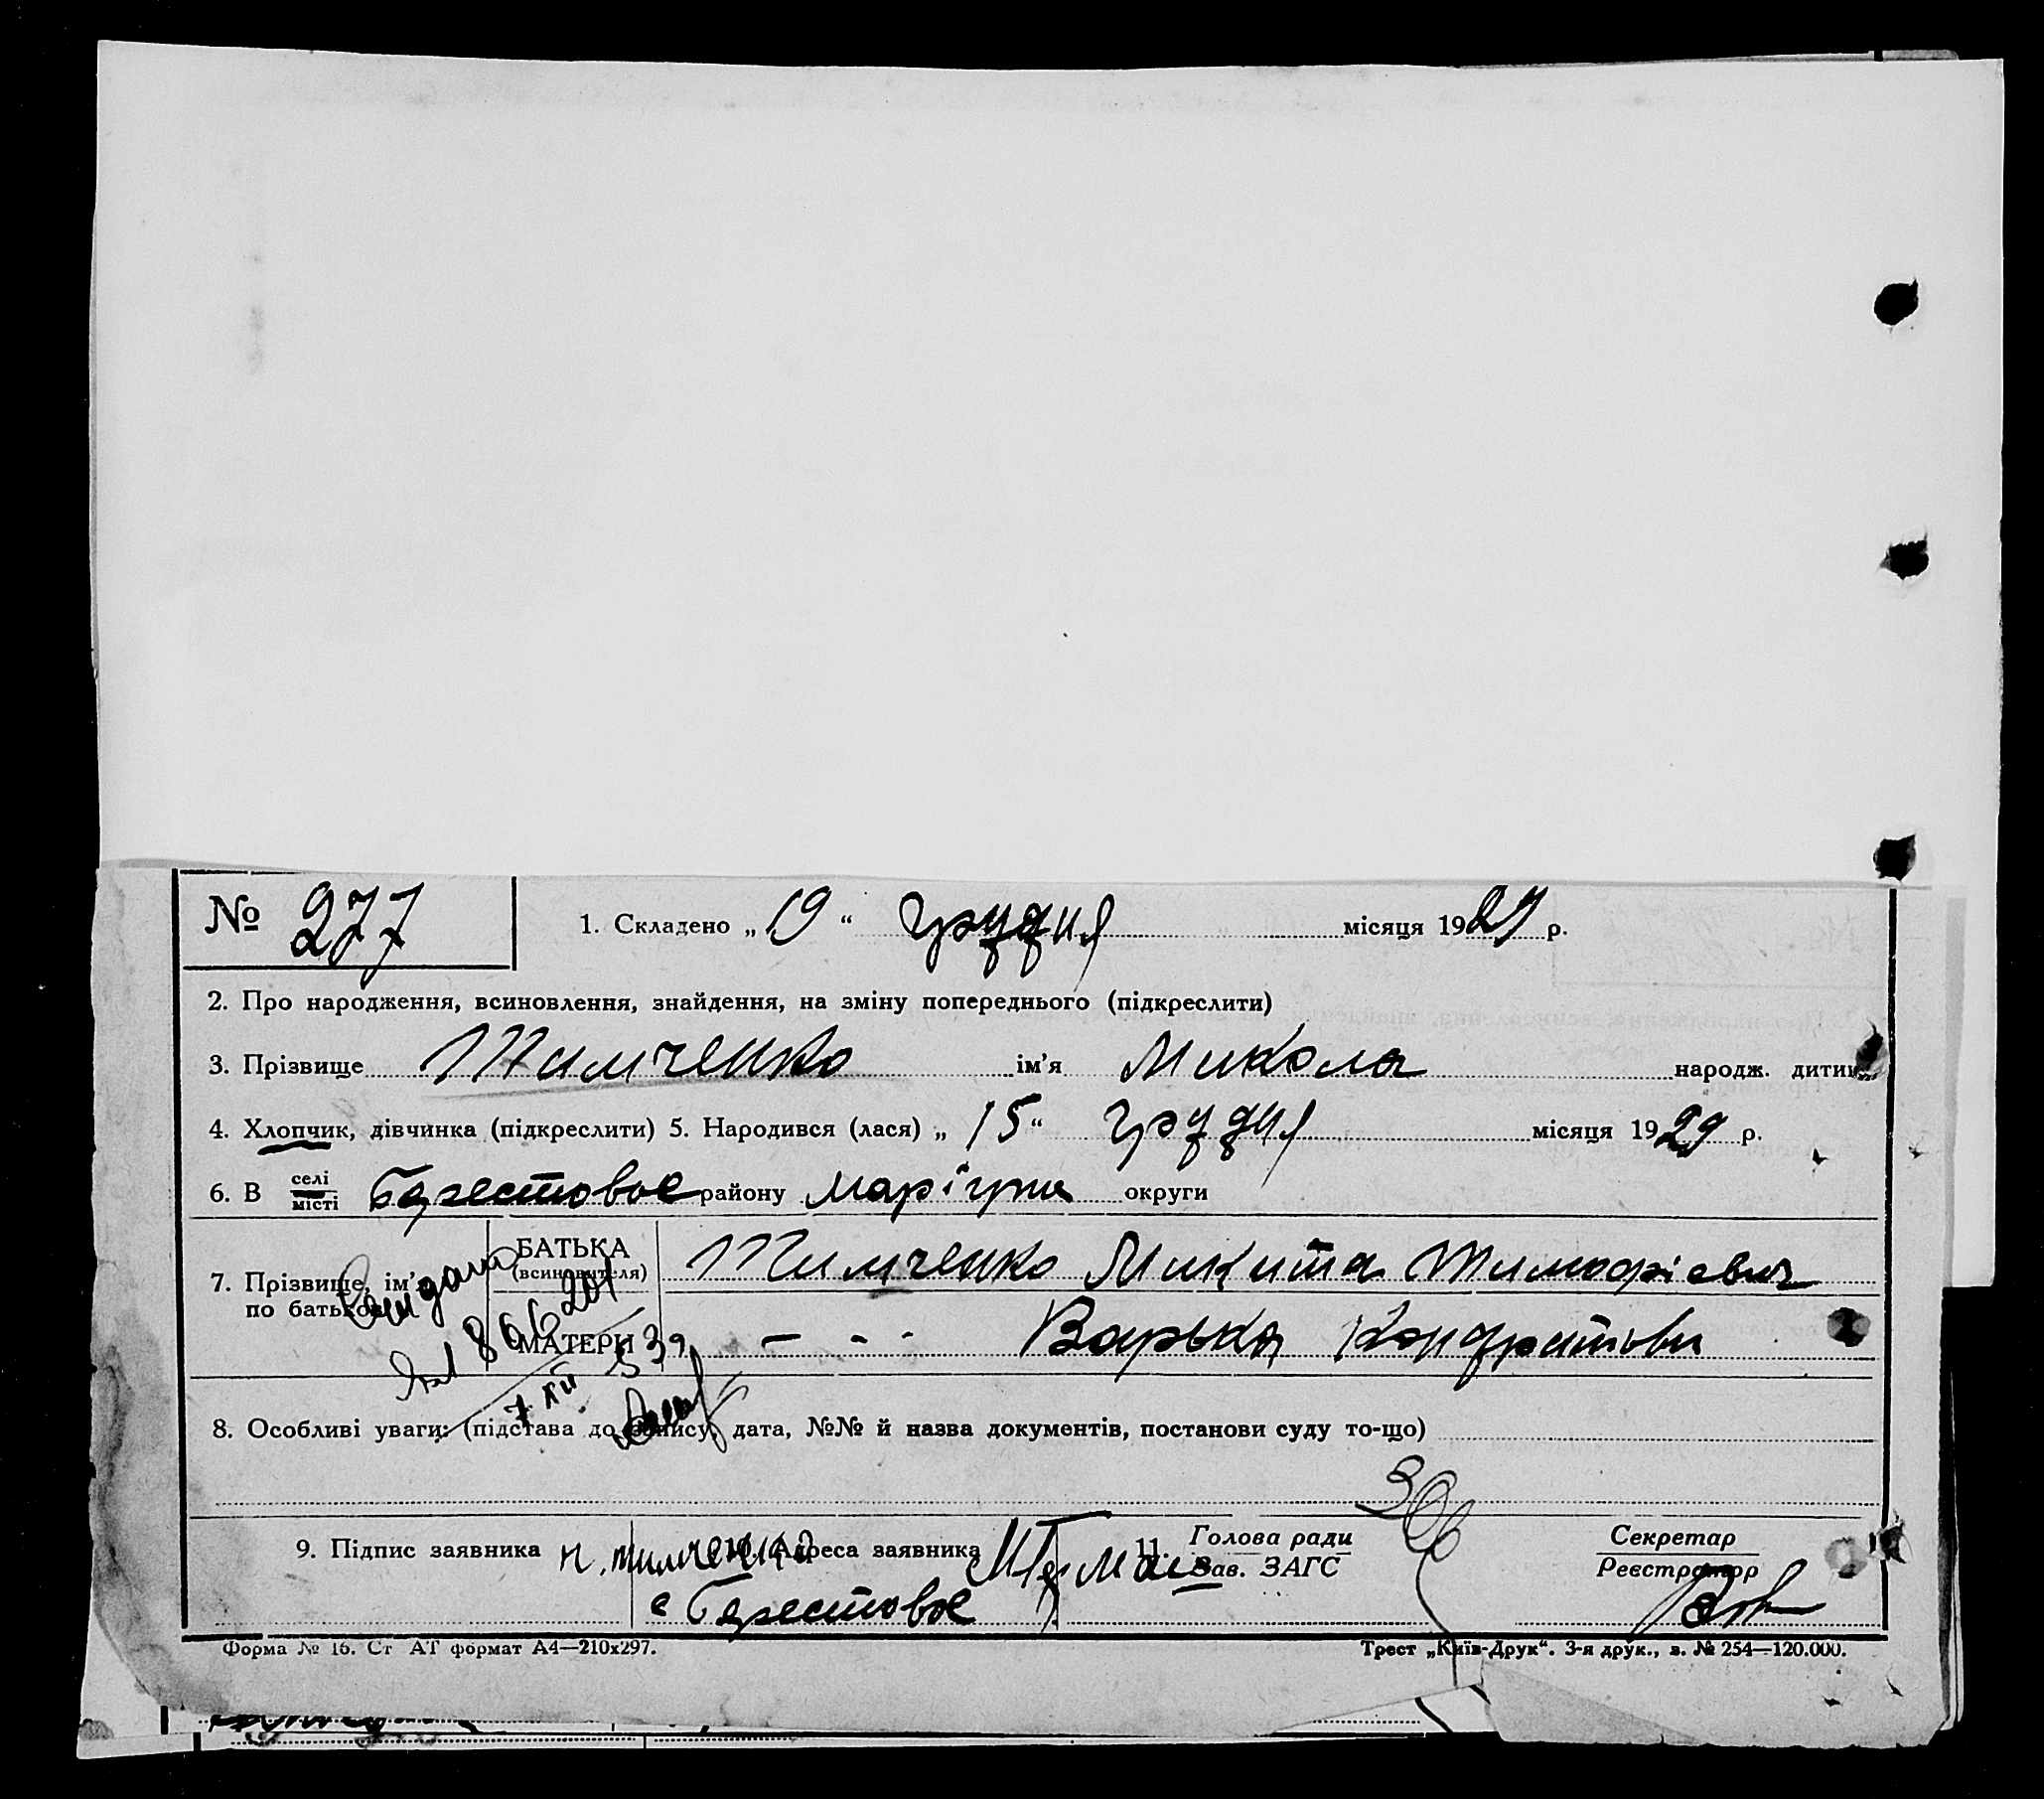 № 277
1. Складено „ 19 “ грудня місяця 1929 р.
2. Про народження, всиновлення, знайдення, на зміну попереднього (підкреслити)
3. Прізвище Тимченко ім’я Микола народж. дитин
4. Хлопчик, дівчинка (підкреслити) 5. Народився (лася) „ 15 “ грудня місяця 1929 р.
6. В селі
місті Берестовое району Маріуп. округи
7. Прізвище, ім’я
по батькові
БАТЬКА
(всиновителя) Тимченко Микита Тимофієвич
МАТЕРИ – - - Варька Кондратовн
8. Особливі уваги: (підстава до запису, дата, №№ й назва документів, постанови суду то-що)
9. Підпис заявника н. тимченко
Адреса заявника
с Берестовое
11. Голова ради
Зав. ЗАГС
Секретар
Реєстратор
Форма № 16. Ст АТ формат А4—210х297.
Трест „Київ-Друк“. 3-я друк., з. № 254—120.000.